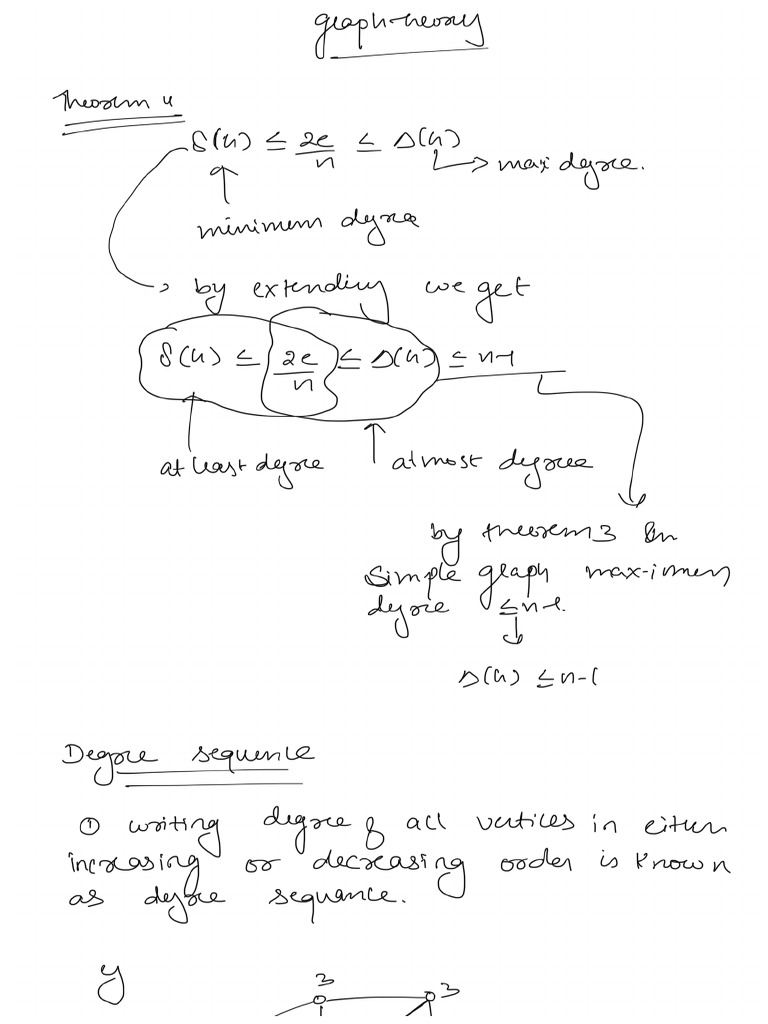 graph theory
Theorem 4
δ(G) ≤ 2e/n ≤ Δ(G)
→ max degree.
minimum degree
→ by extending we get
δ(G) ≤ 2e/n ≤ Δ(G) ≤ n-1
at least degree
atmost degree
by theorem 3 In
Simple graph max-imum
degree ≤ n-1.
Δ(G) ≤ n-1
Degree sequence
① writing degree of all vertices in either
increasing or decreasing order is known
as degree sequence.
3
3